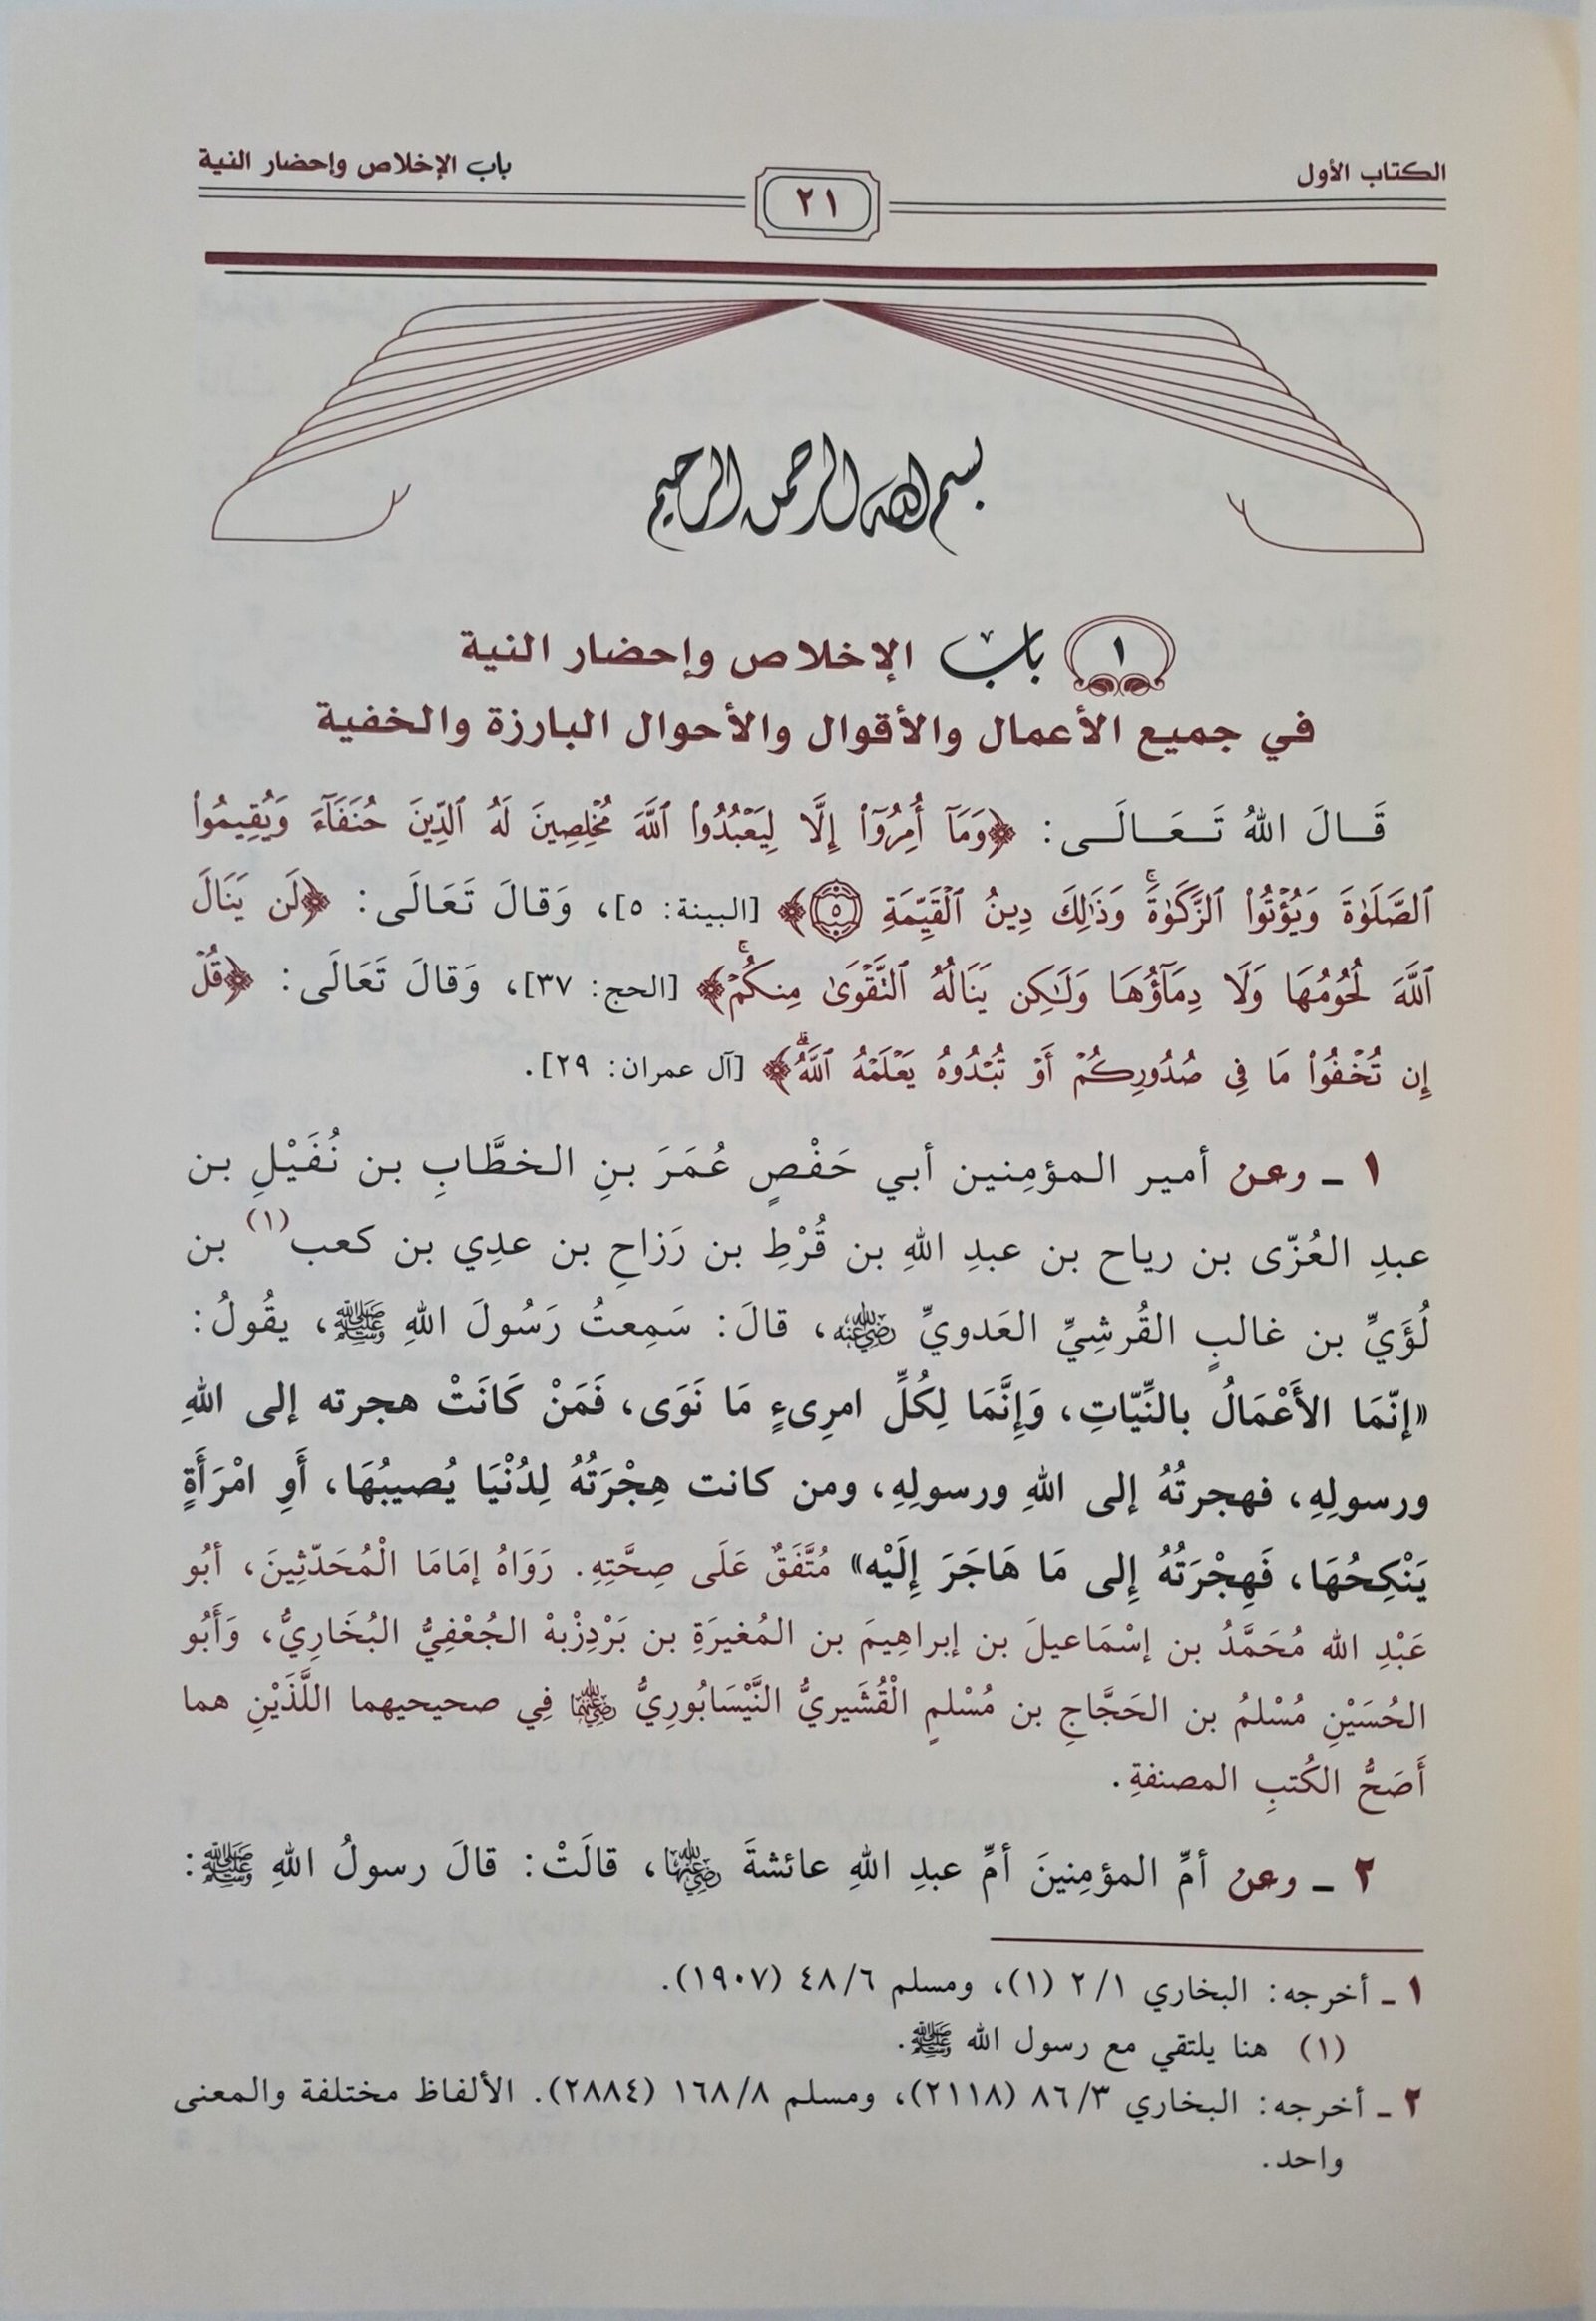 الكتاب الأول
٢١
باب الإخلاص وإحضار النية
بسم الله الرحمن الرحيم
١ باب الإخلاص وإحضار النية
في جميع الأعمال والأقوال والأحوال البارزة والخفية
قَــالَ اللهُ تَــعَــالَــى: ﴿وَمَآ أُمِرُوٓا۟ إِلَّا لِيَعْبُدُوا۟ ٱللَّهَ مُخْلِصِينَ لَهُ ٱلدِّينَ حُنَفَآءَ وَيُقِيمُوا۟
ٱلصَّلَوٰةَ وَيُؤْتُوا۟ ٱلزَّكَوٰةَ ۚ وَذَٰلِكَ دِينُ ٱلْقَيِّمَةِ ٥﴾ [البينة: ٥]، وَقالَ تَعَالَى: ﴿لَن يَنَالَ
ٱللَّهَ لُحُومُهَا وَلَا دِمَآؤُهَا وَلَـٰكِن يَنَالُهُ ٱلتَّقْوَىٰ مِنكُمْ ۚ﴾ [الحج: ٣٧]، وَقالَ تَعَالَى: ﴿قُلْ
إِن تُخْفُوا۟ مَا فِى صُدُورِكُمْ أَوْ تُبْدُوهُ يَعْلَمْهُ ٱللَّهُ ۗ﴾ [آل عمران: ٢٩].
١ ـ وعن أمير المؤمِنين أبي حَفْصٍ عُمَرَ بنِ الخطَّابِ بن نُفَيْلِ بن
عبدِ العُزّى بن رياح بن عبدِ اللهِ بن قُرْطِ بن رَزاحِ بن عدِي بن كعب(١) بن
لُؤَيِّ بن غالبٍ القُرشِيِّ العَدويِّ رضي الله عنه، قالَ: سَمِعتُ رَسُولَ اللهِ ﷺ، يقُولُ:
«إنّمَا الأَعْمَالُ بالنِّيّاتِ، وَإِنَّمَا لِكُلِّ امرِىءٍ مَا نَوَى، فَمَنْ كَانَتْ هجرته إلى اللهِ
ورسولِهِ، فهجرتُهُ إلى اللهِ ورسولِهِ، ومن كانت هِجْرَتُهُ لِدُنْيَا يُصيبُهَا، أَوِ امْرَأَةٍ
يَنْكِحُهَا، فَهِجْرَتُهُ إِلى مَا هَاجَرَ إِلَيْه» مُتَّفَقٌ عَلَى صِحَّتِهِ. رَوَاهُ إمَامَا الْمُحَدّثِينَ، أبُو
عَبْدِ الله مُحَمَّدُ بن إسْمَاعيلَ بن إبراهِيمَ بن المُغيرَةِ بن بَرْدِزْبهْ الجُعْفِيُّ البُخَارِيُّ، وَأَبُو
الحُسَيْنِ مُسْلمُ بن الحَجَّاجِ بن مُسْلمٍ الْقُشَيريُّ النَّيْسَابُورِيُّ رضي الله عنهما فِي صحيحيهما اللَّذَيْنِ هما
أَصَحُّ الكُتبِ المصنفةِ.
٢ ـ وعن أمِّ المؤمِنينَ أمِّ عبدِ اللهِ عائشةَ رضي الله عنها، قالَتْ: قالَ رسولُ اللهِ ﷺ:
١ ـ أخرجه: البخاري ٢/١ (١)، ومسلم ٤٨/٦ (١٩٠٧).
(١) هنا يلتقي مع رسول الله ﷺ.
٢ ـ أخرجه: البخاري ٨٦/٣ (٢١١٨)، ومسلم ١٦٨/٨ (٢٨٨٤). الألفاظ مختلفة والمعنى
واحد.